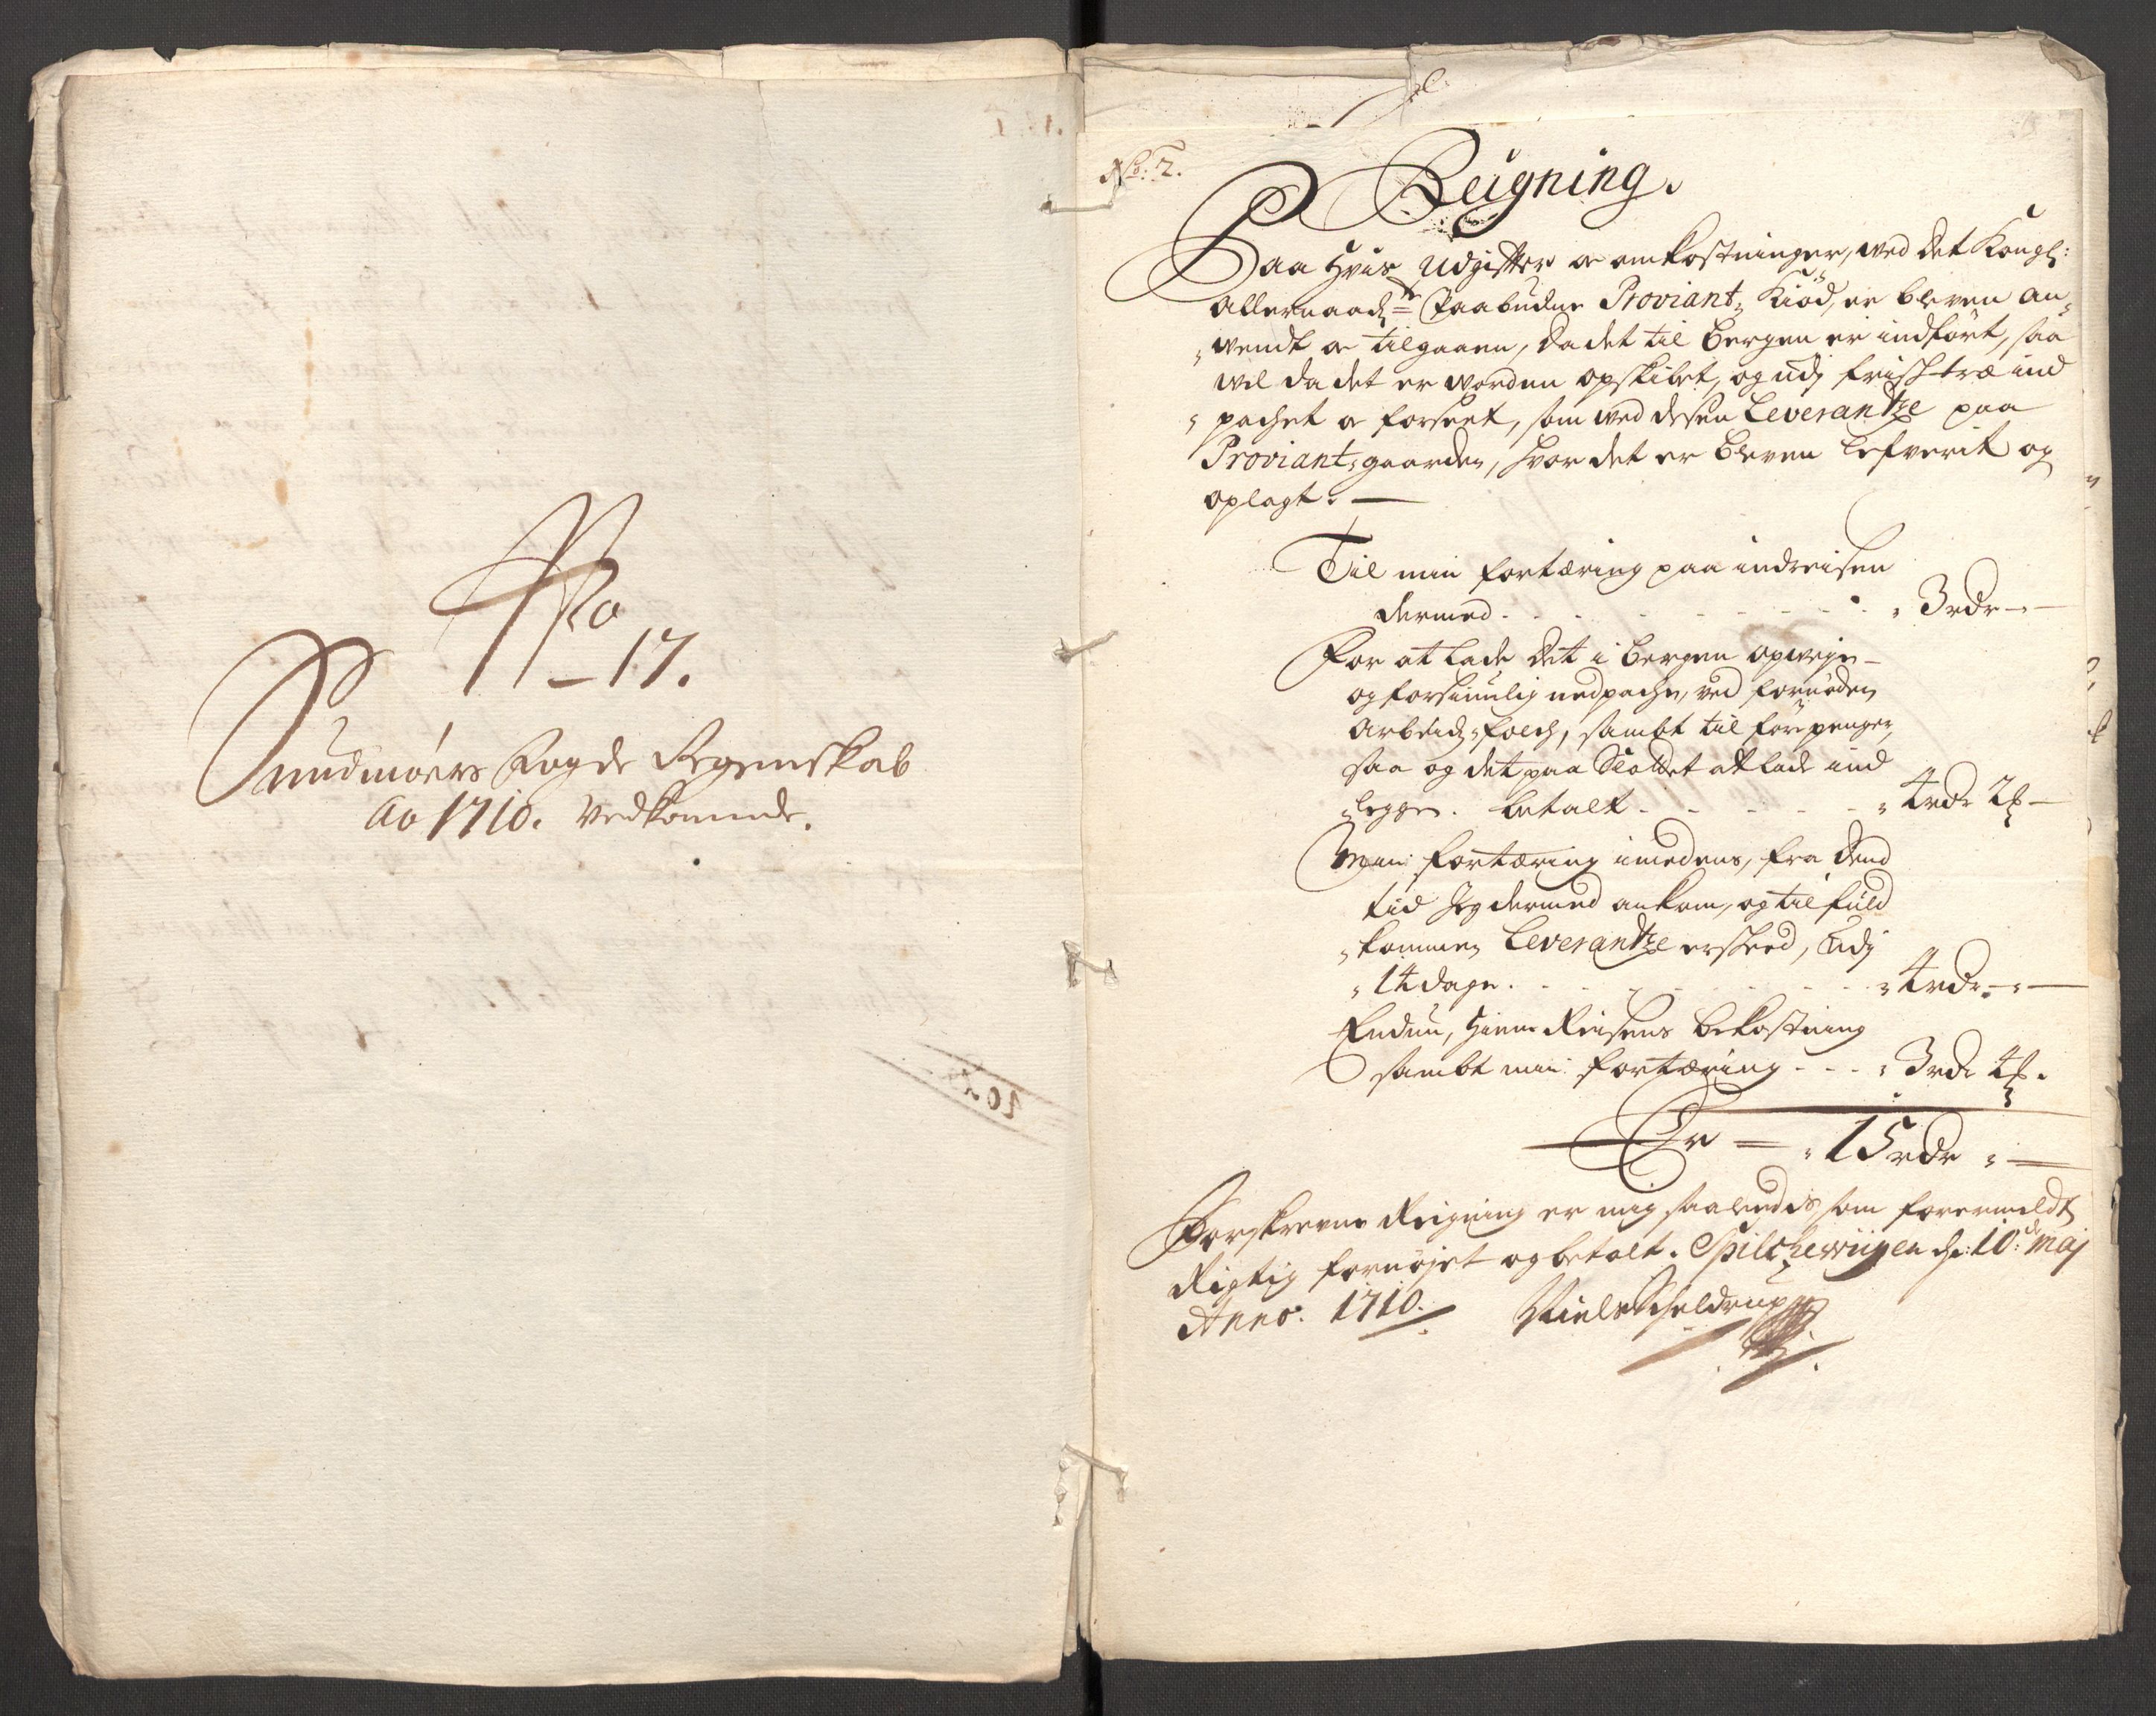 No
– 17.
Sundmøers Fogde Regenskab
Ao 1710. Vedkommde.
No: 2.
Reigning.
Paa Hvis Udgifter oc omkostninger, wed det Kongl:
Allernaad: Paabudne Proviant, Kiød, er bleven an„
„wendt oc tilgaaen, da det til Bergen er indført, saa
vel da det er worden opskibet, og udj frisk træ ind
„packet oc forseet, som wed desen Leverantze paa
Proviant„gaarden, hvor det er bleven lefverit og
oplagt. —
Til min fortæring paa indreisen
dermed . . . . . . . „ 3 rdr – –
For at lade det i Bergen opveje –
og forsuinlig nedpache, ved fornøden
Arbeids„folch, sambt til førpenger,
saa og det paa Slottet at lade ind
„legge. betalt - - - - „ 4 rdr 2 ß –
Min fortæring imedens, fra dend
tid Jeg dermed ankom, og til fuld
„kommen Leverantze erskeed, udj
„ 14 dage . . . . . . . „ 4 rdr – „ –
Enduu, Hiem Reisens bekostning
sambt min fortæring - - - „ 3 rdr 4 ß.
Er — „ 15 rdr „ —
Forskrevne Reigning er mig saaledis som formeldt
Rigtig fornøjet og betalt. Spilchevigen d: 10de Maj
Anno. 1710. Niels Scheldrup